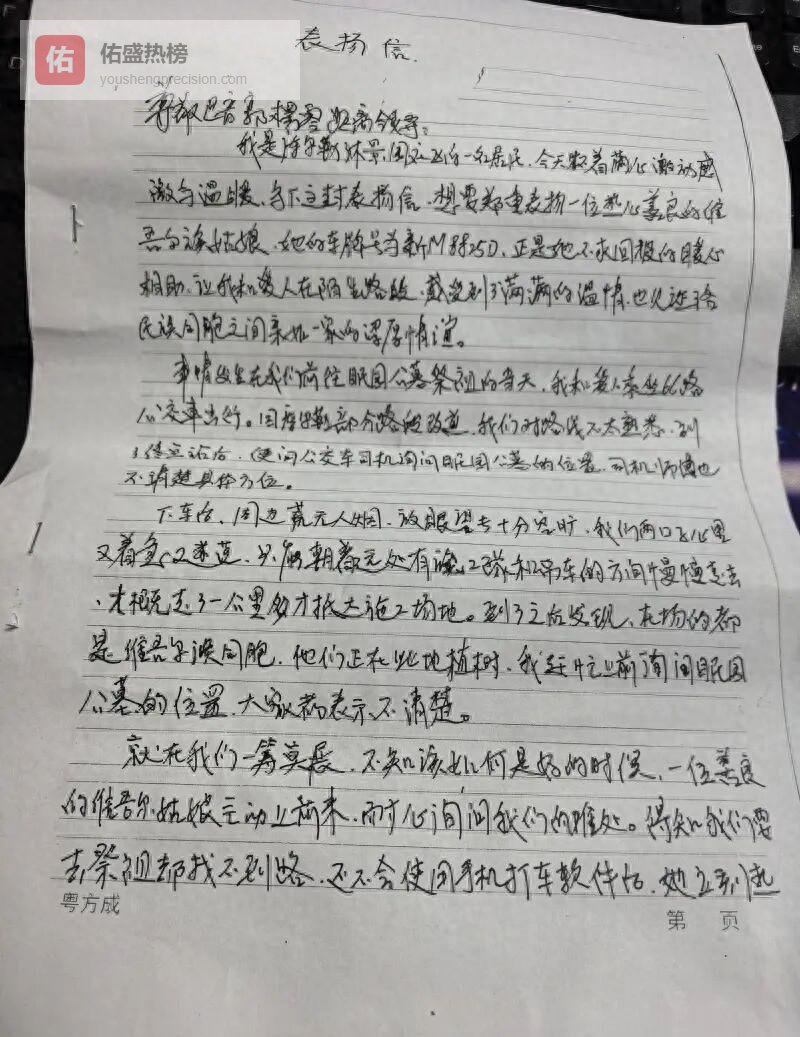 佑 佑盛热榜
youshengprecision.com
表扬信.
尊敬巴音郭楞零距离领导:
我是库尔勒 一名居民,今天怀着满心激动感
激与温暖,写下这封表扬信,想要郑重表扬一位热心善良的维
吾尔族姑娘,她的车牌号为新M 正是她不求回报的暖心
相助,让我和爱人在陌生路段,感受到了满满的温情,也见证了各
民族同胞之间亲如一家的深厚情谊。
事情发生在我们前往眠园公墓祭祖的当天,我和爱人乘坐66路
公交车出行。因库尔勒部分路段改道,我们对路线不太熟悉,到
了 站后,便向公交车司机询问眠园公墓的位置,司机师傅也
不清楚具体方位。
下车后,周边荒无人烟,放眼望去十分空旷,我们两口子心里
又着急又迷茫,只能朝着远处有 和吊车的方向慢慢走去
,才概走了一公里多才抵达施工场地。到了之后发现,在场的都
是维吾尔族同胞,他们正在此地植树,我赶忙上前询问眠园
公墓的位置,大家都表示不清楚。
就在我们一筹莫展,不知该如何是好的时候,一位善良
的维吾尔姑娘主动上前来,耐心询问我们的难处。得知我们要
去祭祖却找不到路,还不会使用手机打车软件后,她立刻热
粤方成
第 页